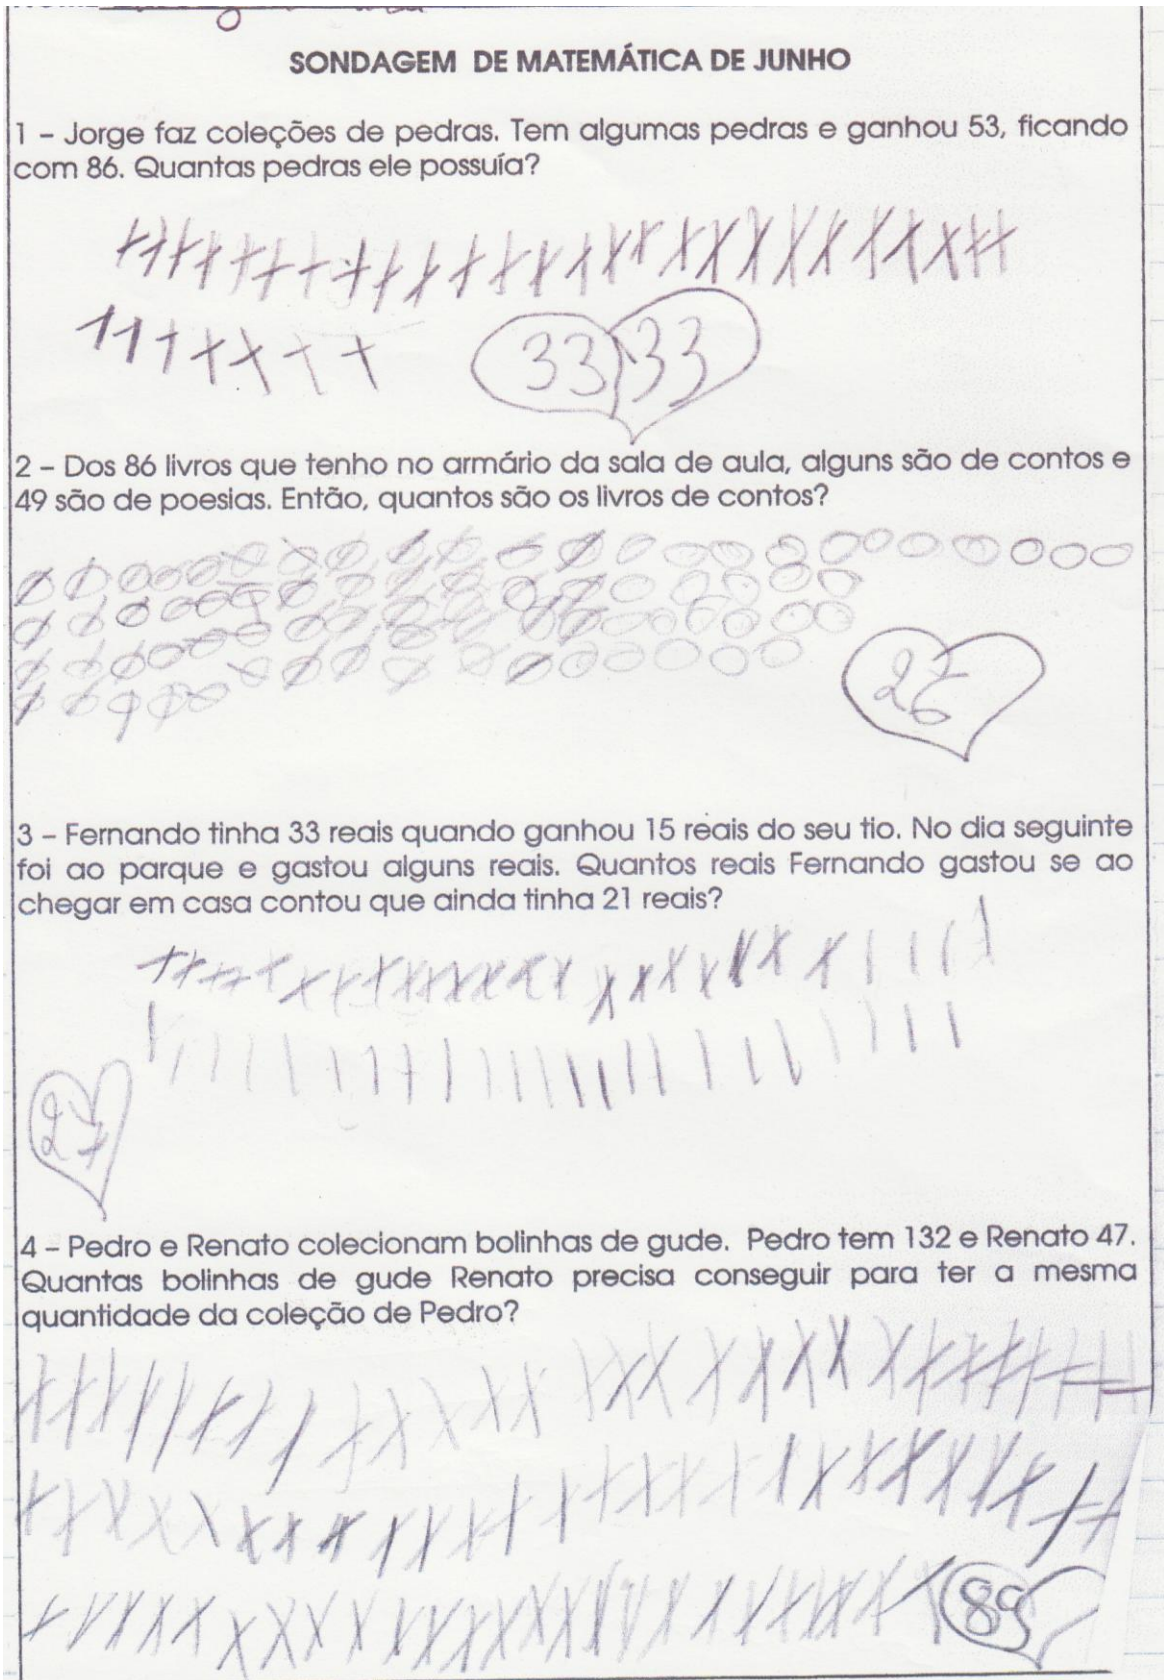 SONDAGEM DE MATEMÁTICA DE JUNHO
1 – Jorge faz coleções de pedras. Tem algumas pedras e ganhou 53, ficando
com 86. Quantas pedras ele possuía?
33 33
2 – Dos 86 livros que tenho no armário da sala de aula, alguns são de contos e
49 são de poesias. Então, quantos são os livros de contos?
26
3 – Fernando tinha 33 reais quando ganhou 15 reais do seu tio. No dia seguinte
foi ao parque e gastou alguns reais. Quantos reais Fernando gastou se ao
chegar em casa contou que ainda tinha 21 reais?
27
4 – Pedro e Renato colecionam bolinhas de gude. Pedro tem 132 e Renato 47.
Quantas bolinhas de gude Renato precisa conseguir para ter a mesma
quantidade da coleção de Pedro?